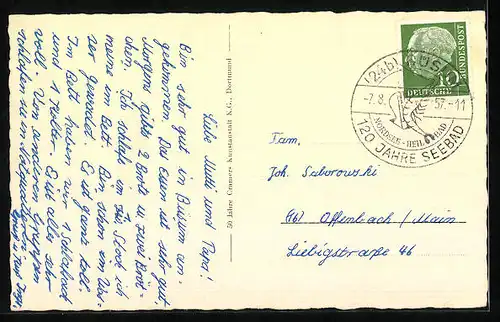 Liebe Mutti und Papi!
Bin sehr gut in Büsum an-
gekommen. Das Essen ist sehr gut.
Morgens gibts 2 Brote u. zwei Bröt-
chen. Ich schlafe im Stock ich
im Bett. Bin schon ein
gewandet. Es ist ganz toll.
Im Bett haben wir 1 Schlafsack
und 1 Teller. Es ist alles sehr
voll. Von anderen Gruppen
schlafen sie in
50 Jahre Cramers Kunstanstalt K.G., Dortmund
(24b) BÜSUM
-7.8.57-11
NORDSEE-HEILBAD
120 JAHRE SEEBAD
10
DEUTSCHE
BUNDESPOST
Fam.
Joh. Saborowski
(16) Offenbach / Main
Liebigstraße 46